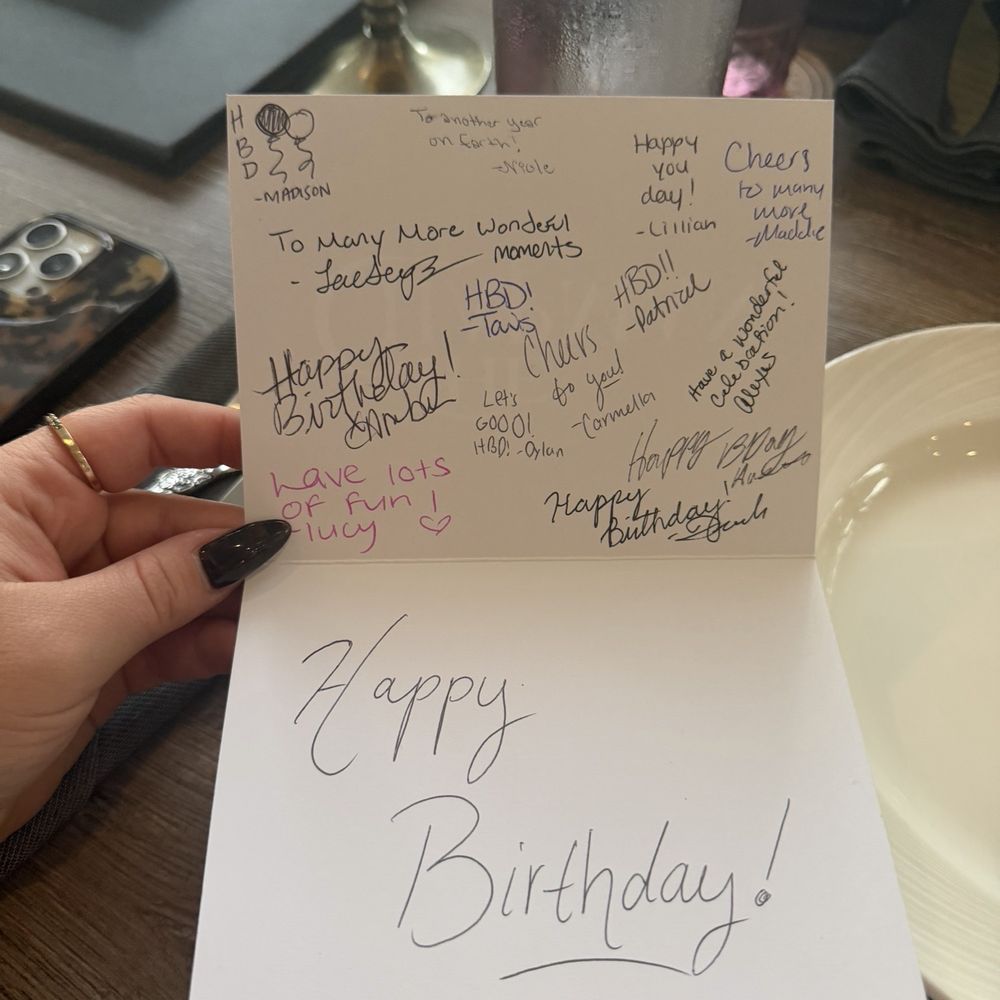 H
B
D
-MADISON
To another year
on Earth!
-Nicole
Happy
you
day!
-Lillian
Cheers
to many
more
-Maddie
To Many More Wonderful
moments
HBD!
-Tavis
HBD!!
-Patrick
Have a wonderful
celebration!
Alexis
Happy
Birthday!
Cheers
to you!
-Carmella
Let's
GOOO!
HBD! -Dylan
Have lots
of fun!
-lucy
Happy BDay
Happy
Birthday!
Happy
Birthday!